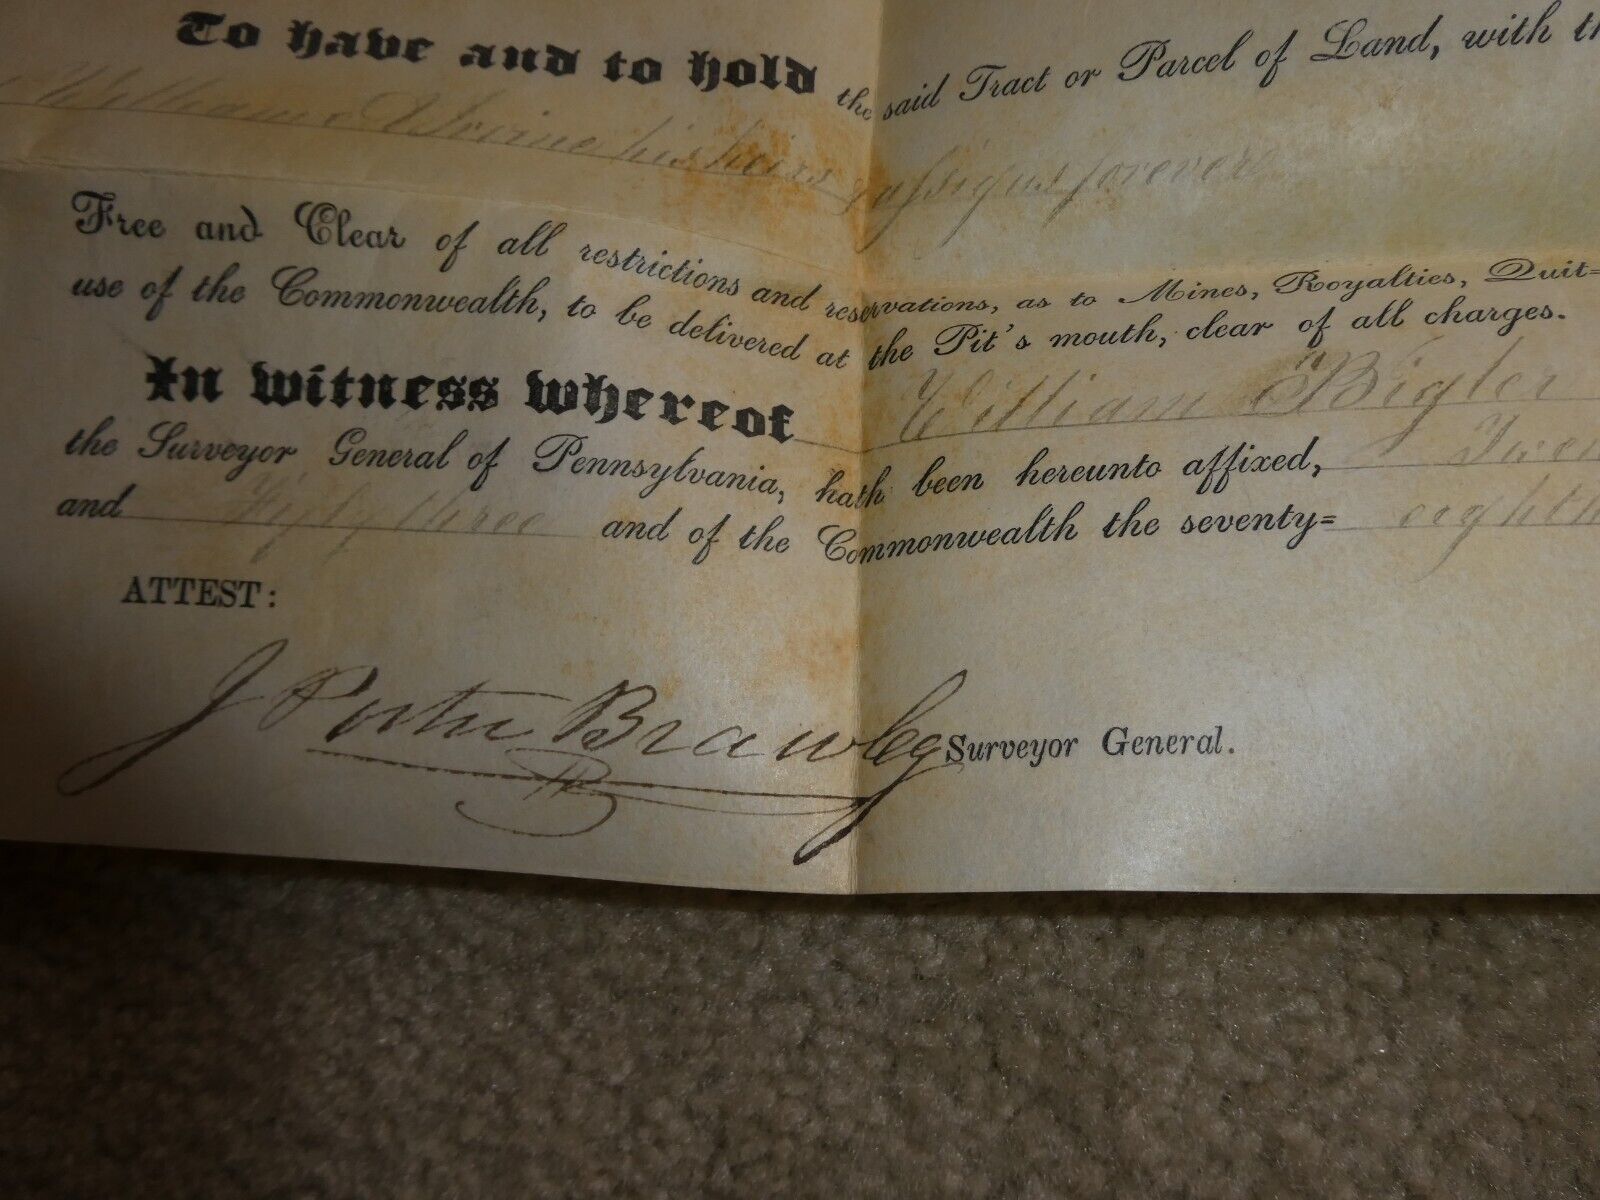 To have and to hold the said Tract or Parcel of Land, with
William A Irvine his heirs & assigns forever
Free and Clear of all restrictions and reservations, as to Mines, Royalties, Quit=
use of the Commonwealth, to be delivered at the Pit's mouth, clear of all charges.
In witness whereof William Bigler
the Surveyor General of Pennsylvania, hath been hereunto affixed, Twen
and Fifty three and of the Commonwealth the seventy= eighth
ATTEST:
J Porter Brawley Surveyor General.